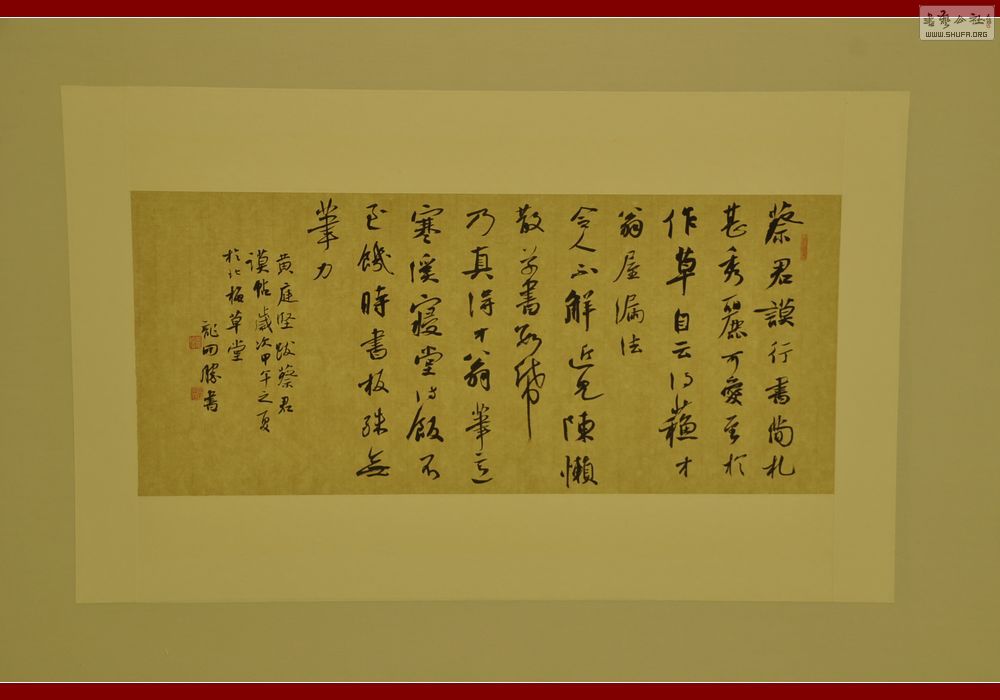 蔡君謨行書簡札
甚秀麗可愛至於
作草自云得蘇才
翁屋漏法
令人不解近見陳懶
散草書數紙
乃真得才翁筆意
寒溪寢堂待飯不
至饑時書板殊無
筆力
黄庭堅跋蔡君
謨帖歲次甲午之夏
於北板草堂
田勝書
書藝公社
WWW.SHUFA.ORG